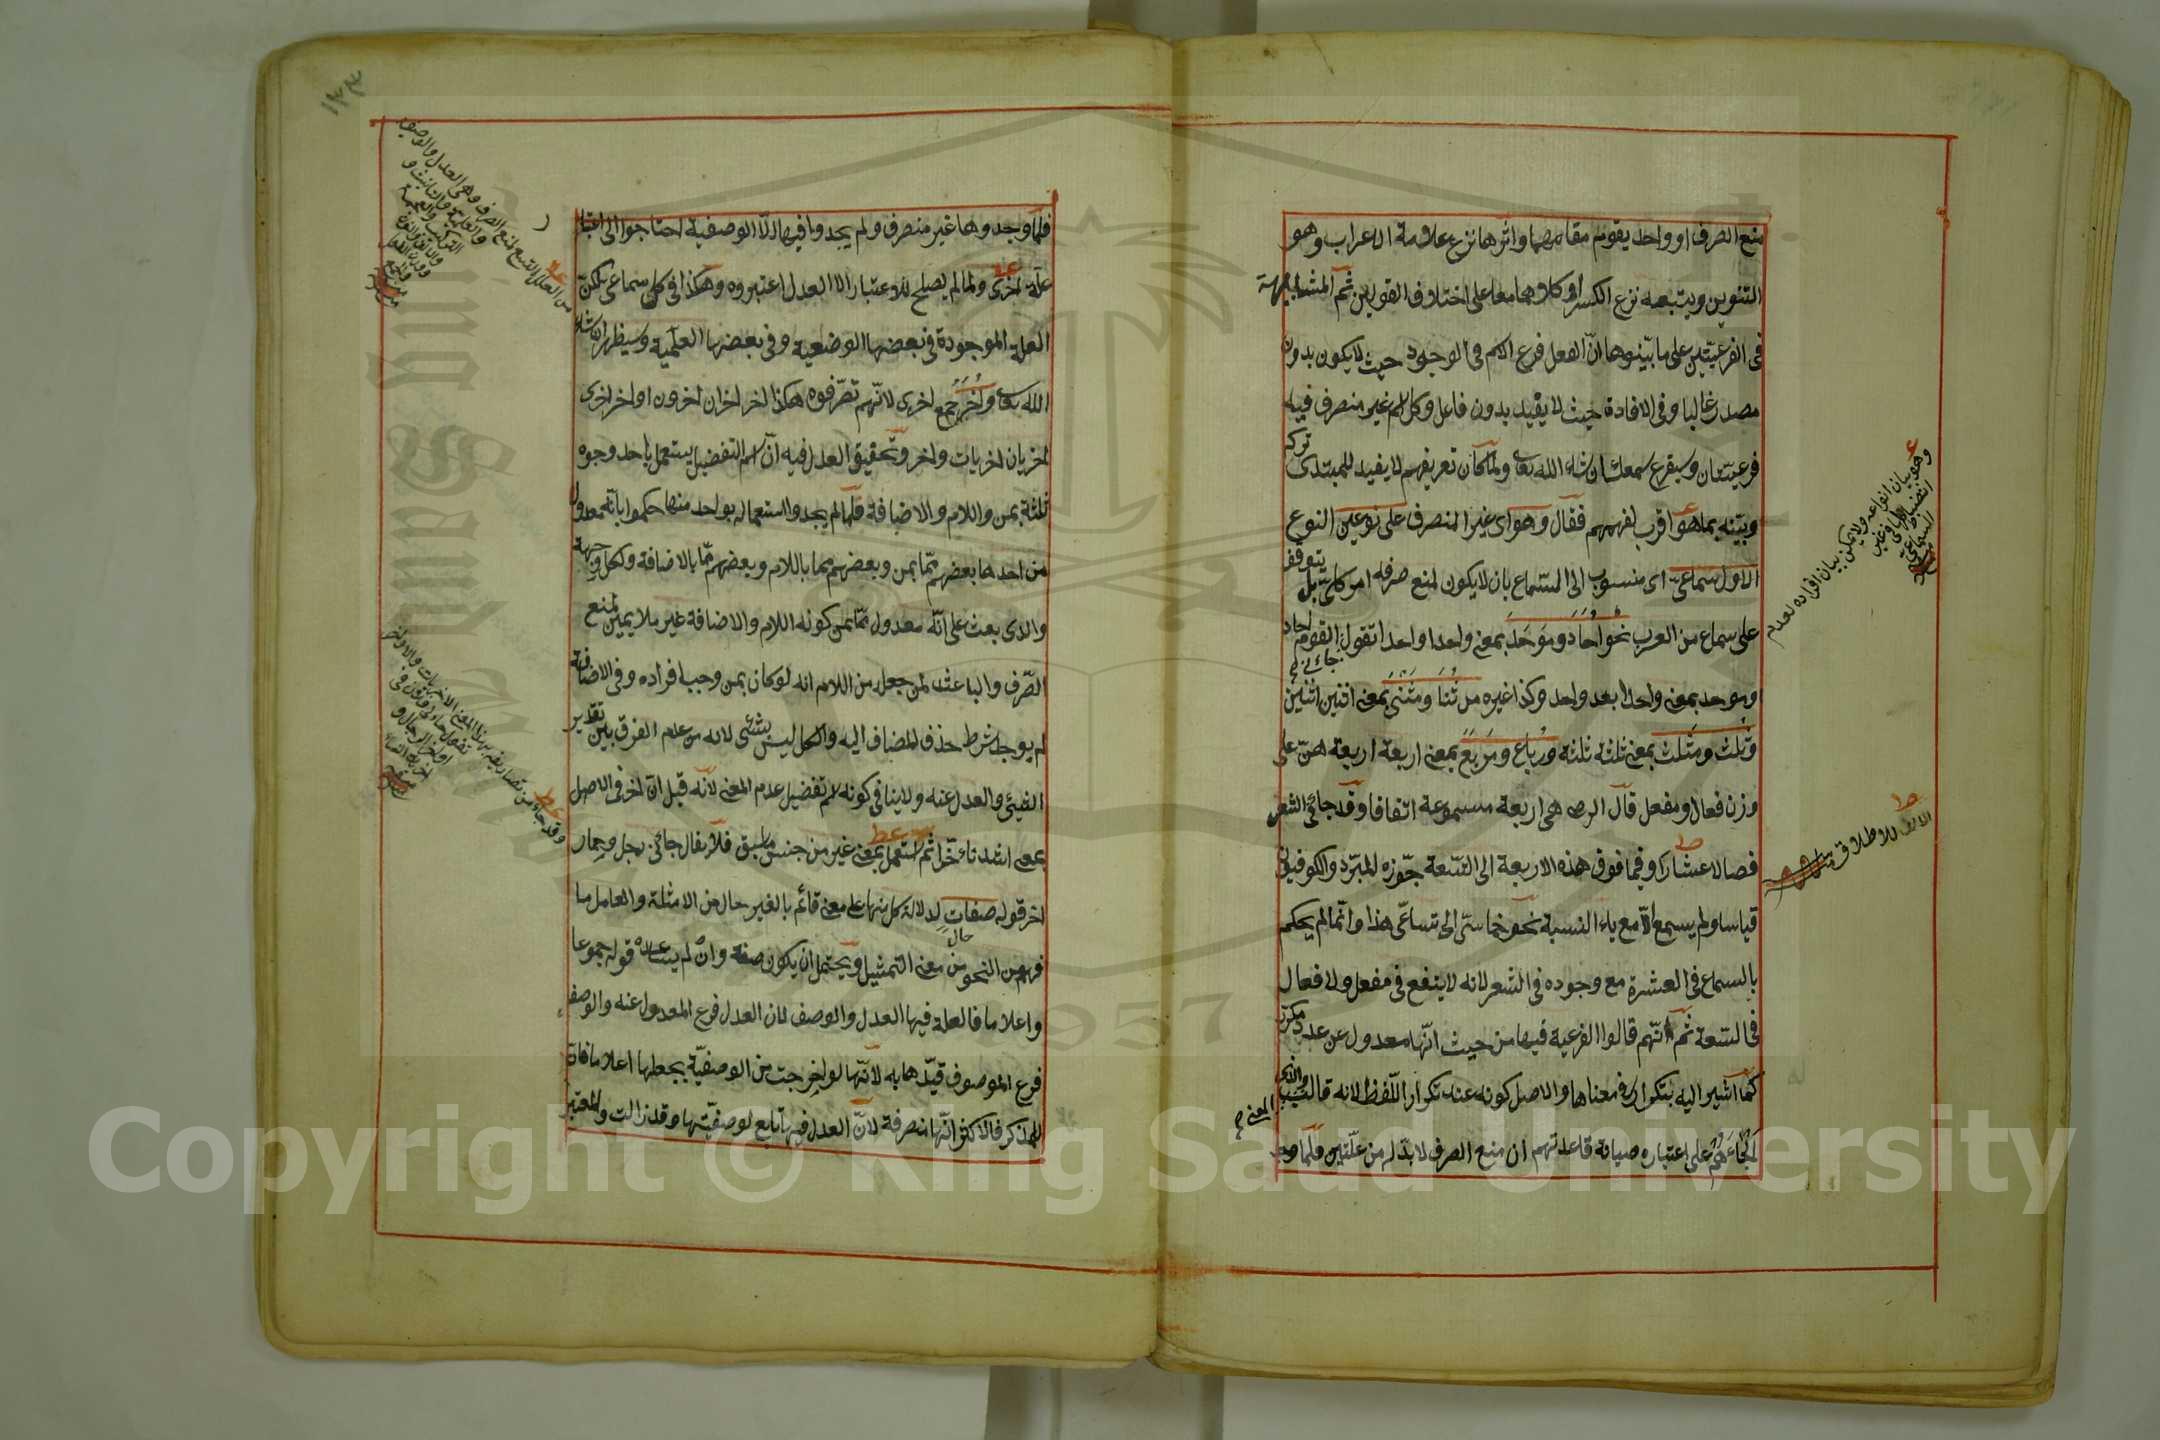 منع الصرف او واحد يقوم مقامهما واثرهما نزع علامة الاعراب وهو
التنوين ويتبعه نزع الكسر او كلاهما معا على اختلاف القولين ثم المشابهة
في الفرعيتين على ما بينوها ان الفعل فرع الاسم في الوجود حيث لا يكون بدون
مصدر غالبا وفي الافادة حيث لا يفيد بدون فاعل وكل اسم غير منصرف فيه
فرعيتان وسيقرع سمعك ان شاء الله تعا ولما كان تعريفهم لا يفيد للمبتدى تركه
وبينه بما هو اقرب لفهمهم فقال وهو اى غير المنصرف على نوعين النوع
الاول سماعى اى منسوب الى السماع بان لا يكون لمنع صرفه امر كلى بل يتوقف
على سماع من العرب نحو اُحاد ومَوحَد بمعنى واحدا واحدا تقول القوم احاد
جاءنى
وموحد بمعنى واحدا بعد واحد وكذا غيره من ثُنا ومَثنى بمعنى اثنين اثنين
وثلث ومثلث بمعنى ثلثة ثلثة ورباع ومربع بمعنى اربعة اربعة هن على
وزن فعال ومفعل قال الرضى هى اربعة مسموعة اتفاقا وقد جاء فى الشعر
فصالا عشارا وفيما فوق هذه الاربعة الى التسعة جوزه المبرد والكوفيون
قياسا ولم يسمع الا مع ياء النسبة نحو خماسى الى تساعى هذا وانما لم يحكم
بالسماع فى العشرة مع وجوده فى الشعر لانه لا ينفع فى مفعل ولا فعال
فى التسعة ثم انهم قالوا الفرعية فيها من حيث انها معدول عن عدد مكرر
كما اشير اليه بتكرار فى معناها والاصل كونه عند تكرار اللفظ لانه قالب المعنى والذى
الجاءهم على اعتباره صيانة قاعدتهم ان منع الصرف لا بد له من علتين فلما وجد
وهو بيان انواعه ولا يمكن بيان افراده لعدم
انضباطها فى غير
السماعى
الالف للاطلاق
١٣٣
فلما وجدوها غير منصرف ولم يجدوا فيها الا الوصفية احتاجوا الى اعتبار
علة اخرى ولما لم يصلح للاعتبار الا العدل اعتبروه وهكذا فى كل سماعى لكن
العلة الموجودة فى بعضها الوضعية وفى بعضها العلمية وسيظهر ان شاء
الله تعا واُخَرُ جمع اخرى لانهم تصرفوه هكذا اخر اخران اخرون اواخر اخرى
اخريان اخريات واخر وتحقيق العدل فيه ان اسم التفضيل يستعمل باحد وجوه
ثلثة بمن واللام والاضافة فلما لم يجدوا استعماله بواحد منها حكموا بانه معدول
من احدها بعضهم مما بمن وبعضهم مما باللام وبعضهم مما بالاضافة ولكل وجهة
والذى بعث على انه معدول مما بمن كونه اللام والاضافة غير ملايمين لمنع
الصرف والباعث لمن جعله من اللام انه لو كان بمن وجب افراده وفى الاضافة
لم يوجد شرط حذف المضاف اليه والكل ليس بشئ لانه من عدم الفرق بين تقدير
الشيئ والعدل عنه ولا ينافى كونه اسم تفضيل عدم المعنى لانه قبل ان اخر فى الاصل
بمعنى اشد تاخرا ثم استعمل بمعنى غير من جنس ما سبق فلا يقال جاءنى رجل وحمار
اخر قوله صفات لدلالة كل منها على معنى قائم بالغير حال من الامثلة والعامل ما
حال
فهم من النحو من معنى التمثيل ويحتمل ان يكون صفة وان لم يساعده قوله جموعا
واعلاما فالعلة فيها العدل والوصف لان العدل فرع المعدول عنه والوصف
فرع الموصوف قيدها به لانها لو اخرجت من الوصفية بجعلها اعلاما فان
للمذكر فالاكثر انها منصرفة لان العدل فيها تابع لوصفيتها وقد زالت والمعتبر
من العلل التسع لمنع الصرف وهى العدل والوصف
والعلمية والتانيث و
التركيب والعجمة
والالف والنون
ووزن الفعل
والجمع
Copyright © King Saud University
1957